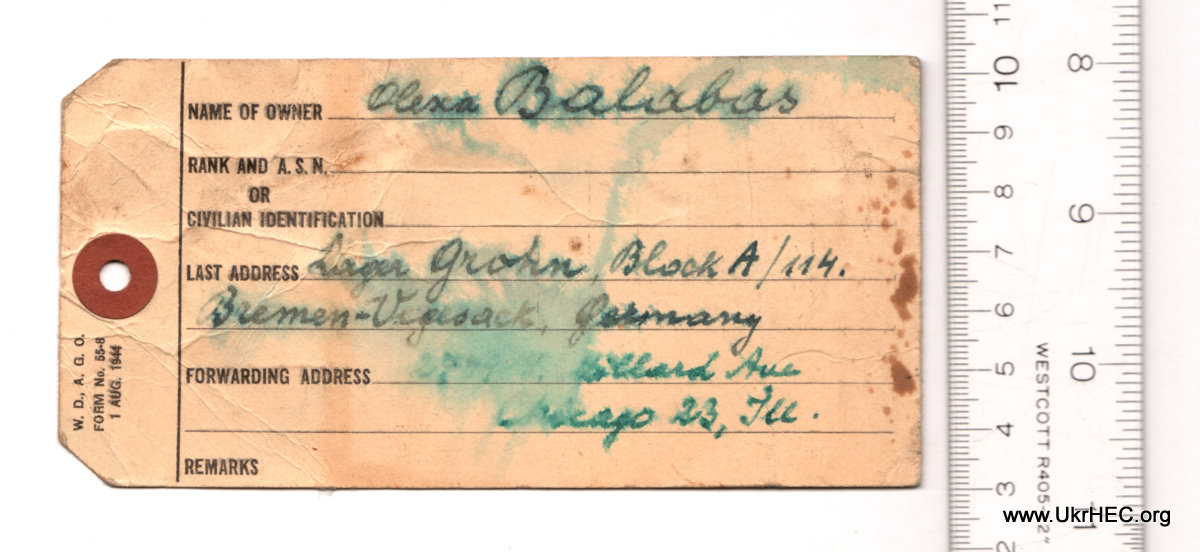 NAME OF OWNER Olexa Balabas
RANK AND A. S. N.
OR
CIVILIAN IDENTIFICATION
LAST ADDRESS Lager Grohn, Block A/114.
Bremen-Vegesack, Germany
FORWARDING ADDRESS Ave
23, Ill.
REMARKS
W. D., A. G. O.
FORM No. 55-8
1 AUG. 1944
11
10
9
8
7
6
5
4
3
2
8
9
10
11
WESTCOTT
www.UkrHEC.org